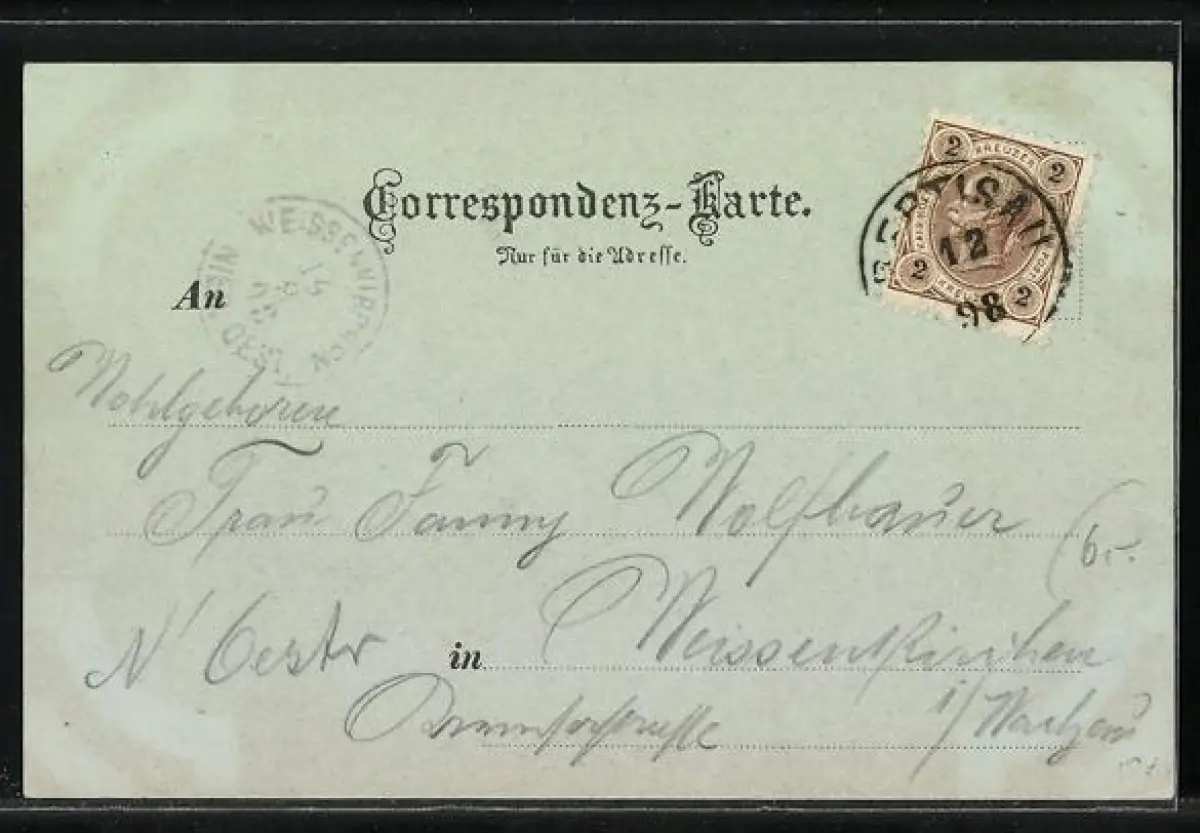 Correspondenz-Karte.
Nur für die Adresse.
2 KREUZER 2
2 2
12
98
WEISSENKIRCHEN
15
8
98
An
Wohlgeboren
Frau Fanny Wolfbauer
N' Oestr in Weissenkirchen
i/Wachau